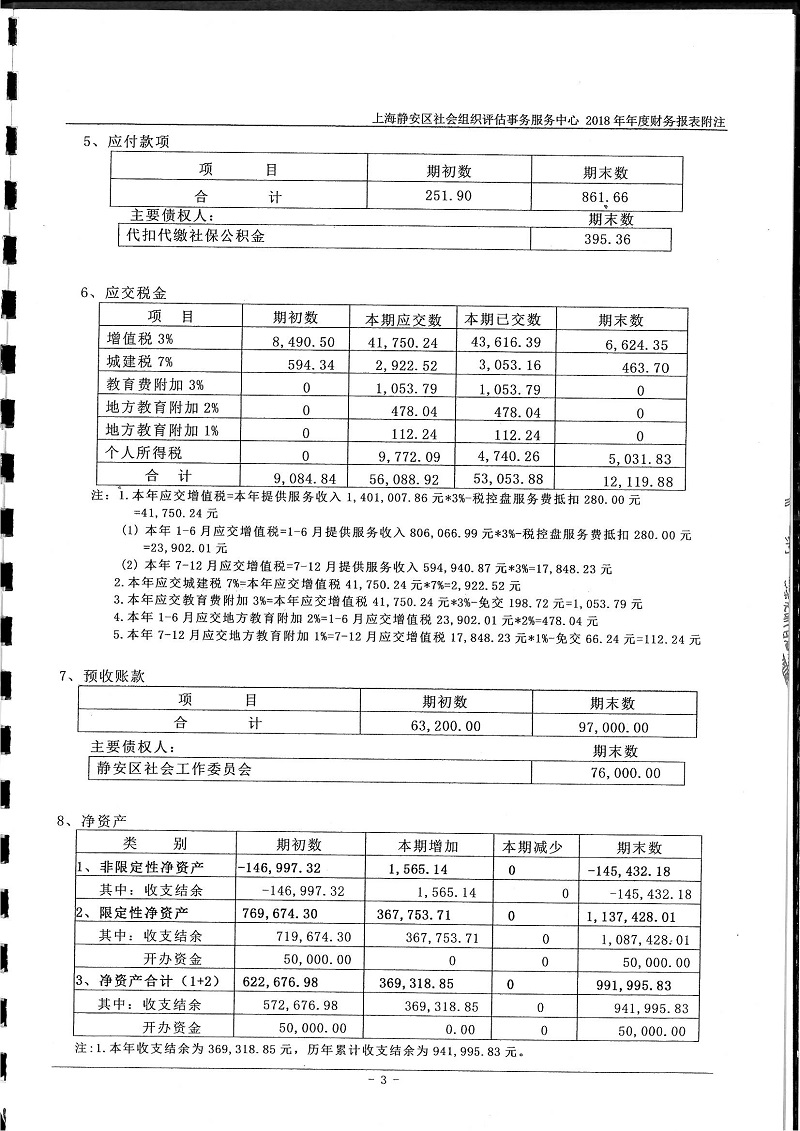 上海静安区社会组织评估事务服务中心 2018 年年度财务报表附注
5、应付款项
项 目 期初数 期末数
合 计 251.90 861.66
主要债权人： 期末数
代扣代缴社保公积金 395.36
6、应交税金
项 目 期初数 本期应交数 本期已交数 期末数
增值税 3% 8,490.50 41,750.24 43,616.39 6,624.35
城建税 7% 594.34 2,922.52 3,053.16 463.70
教育费附加 3% 0 1,053.79 1,053.79 0
地方教育附加 2% 0 478.04 478.04 0
地方教育附加 1% 0 112.24 112.24 0
个人所得税 0 9,772.09 4,740.26 5,031.83
合 计 9,084.84 56,088.92 53,053.88 12,119.88
注：1.本年应交增值税=本年提供服务收入 1,401,007.86 元*3%-税控盘服务费抵扣 280.00 元
=41,750.24 元
(1) 本年 1-6 月应交增值税=1-6 月提供服务收入 806,066.99 元*3%-税控盘服务费抵扣 280.00 元
=23,902.01 元
(2) 本年 7-12 月应交增值税=7-12 月提供服务收入 594,940.87 元*3%=17,848.23 元
2.本年应交城建税 7%=本年应交增值税 41,750.24 元*7%=2,922.52 元
3.本年应交教育费附加 3%=本年应交增值税 41,750.24 元*3%-免交 198.72 元=1,053.79 元
4.本年 1-6 月应交地方教育附加 2%=1-6 月应交增值税 23,902.01 元*2%=478.04 元
5.本年 7-12 月应交地方教育附加 1%=7-12 月应交增值税 17,848.23 元*1%-免交 66.24 元=112.24 元
7、预收账款
项 目 期初数 期末数
合 计 63,200.00 97,000.00
主要债权人： 期末数
静安区社会工作委员会 76,000.00
8、净资产
类 别 期初数 本期增加 本期减少 期末数
1、非限定性净资产 -146,997.32 1,565.14 0 -145,432.18
其中：收支结余 -146,997.32 1,565.14 0 -145,432.18
2、限定性净资产 769,674.30 367,753.71 0 1,137,428.01
其中：收支结余 719,674.30 367,753.71 0 1,087,428.01
开办资金 50,000.00 0 0 50,000.00
3、净资产合计（1+2） 622,676.98 369,318.85 0 991,995.83
其中：收支结余 572,676.98 369,318.85 0 941,995.83
开办资金 50,000.00 0.00 0 50,000.00
注:1.本年收支结余为 369,318.85 元，历年累计收支结余为 941,995.83 元。
- 3 -